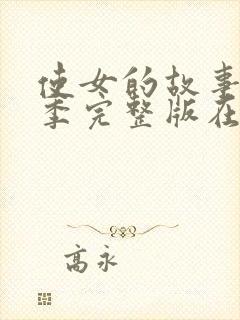 使女的故事
季完整版在
高永